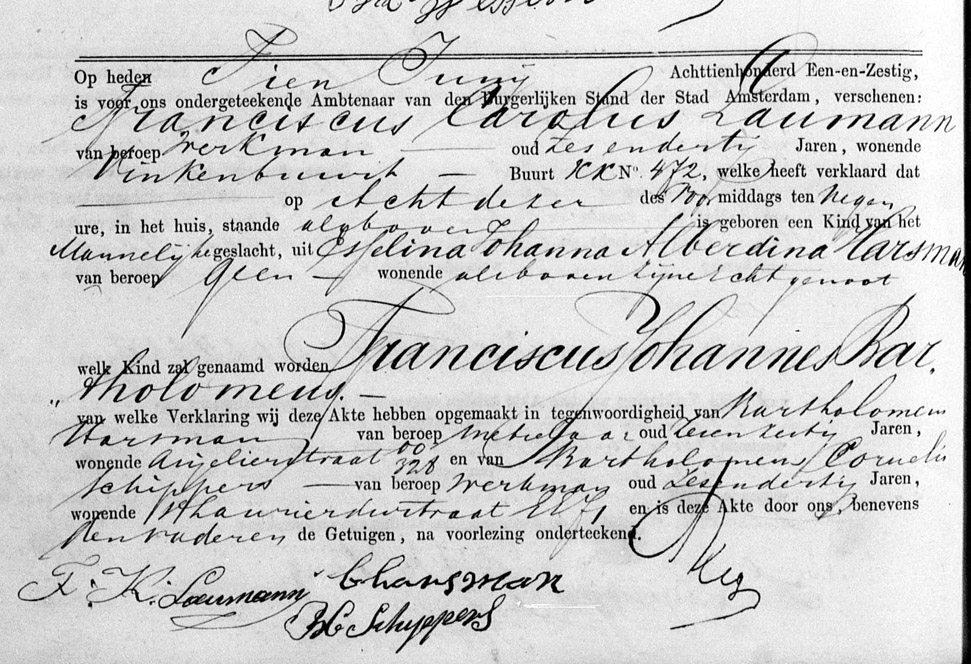 Op heden Tien Junij Achttienhonderd Een-en-Zestig,
is voor ons ondergeteekende Ambtenaar van den Burgerlijken Stand der Stad Amsterdam, verschenen:
Franciscus Carolus Laumann
van beroep Werkman oud Zesendertig Jaren, wonende
Vinkenbuurt Buurt KK No. 472, welke heeft verklaard dat
op Acht dezer des Voormiddags ten Negen
ure, in het huis, staande alsboven is geboren een Kind van het
Mannelijke geslacht, uit Esselina Johanna Alberdina Harsman
van beroep geen wonende alsboven zijne Echtgenoot
welk Kind zal genaamd worden Franciscus Johannes Bar-
„tholomeus. —
van welke Verklaring wij deze Akte hebben opgemaakt in tegenwoordigheid van Bartholomeus
Harsman van beroep Metselaar oud Jaren,
wonende Anjelierstraat 328 en van Bartholomeus Cornelis
Schippers van beroep Werkman oud Zesendertig Jaren,
wonende en is deze Akte door ons, benevens
den vader en de Getuigen, na voorlezing onderteekend.
F. K. Laumann
Bharsman
BC Schippers